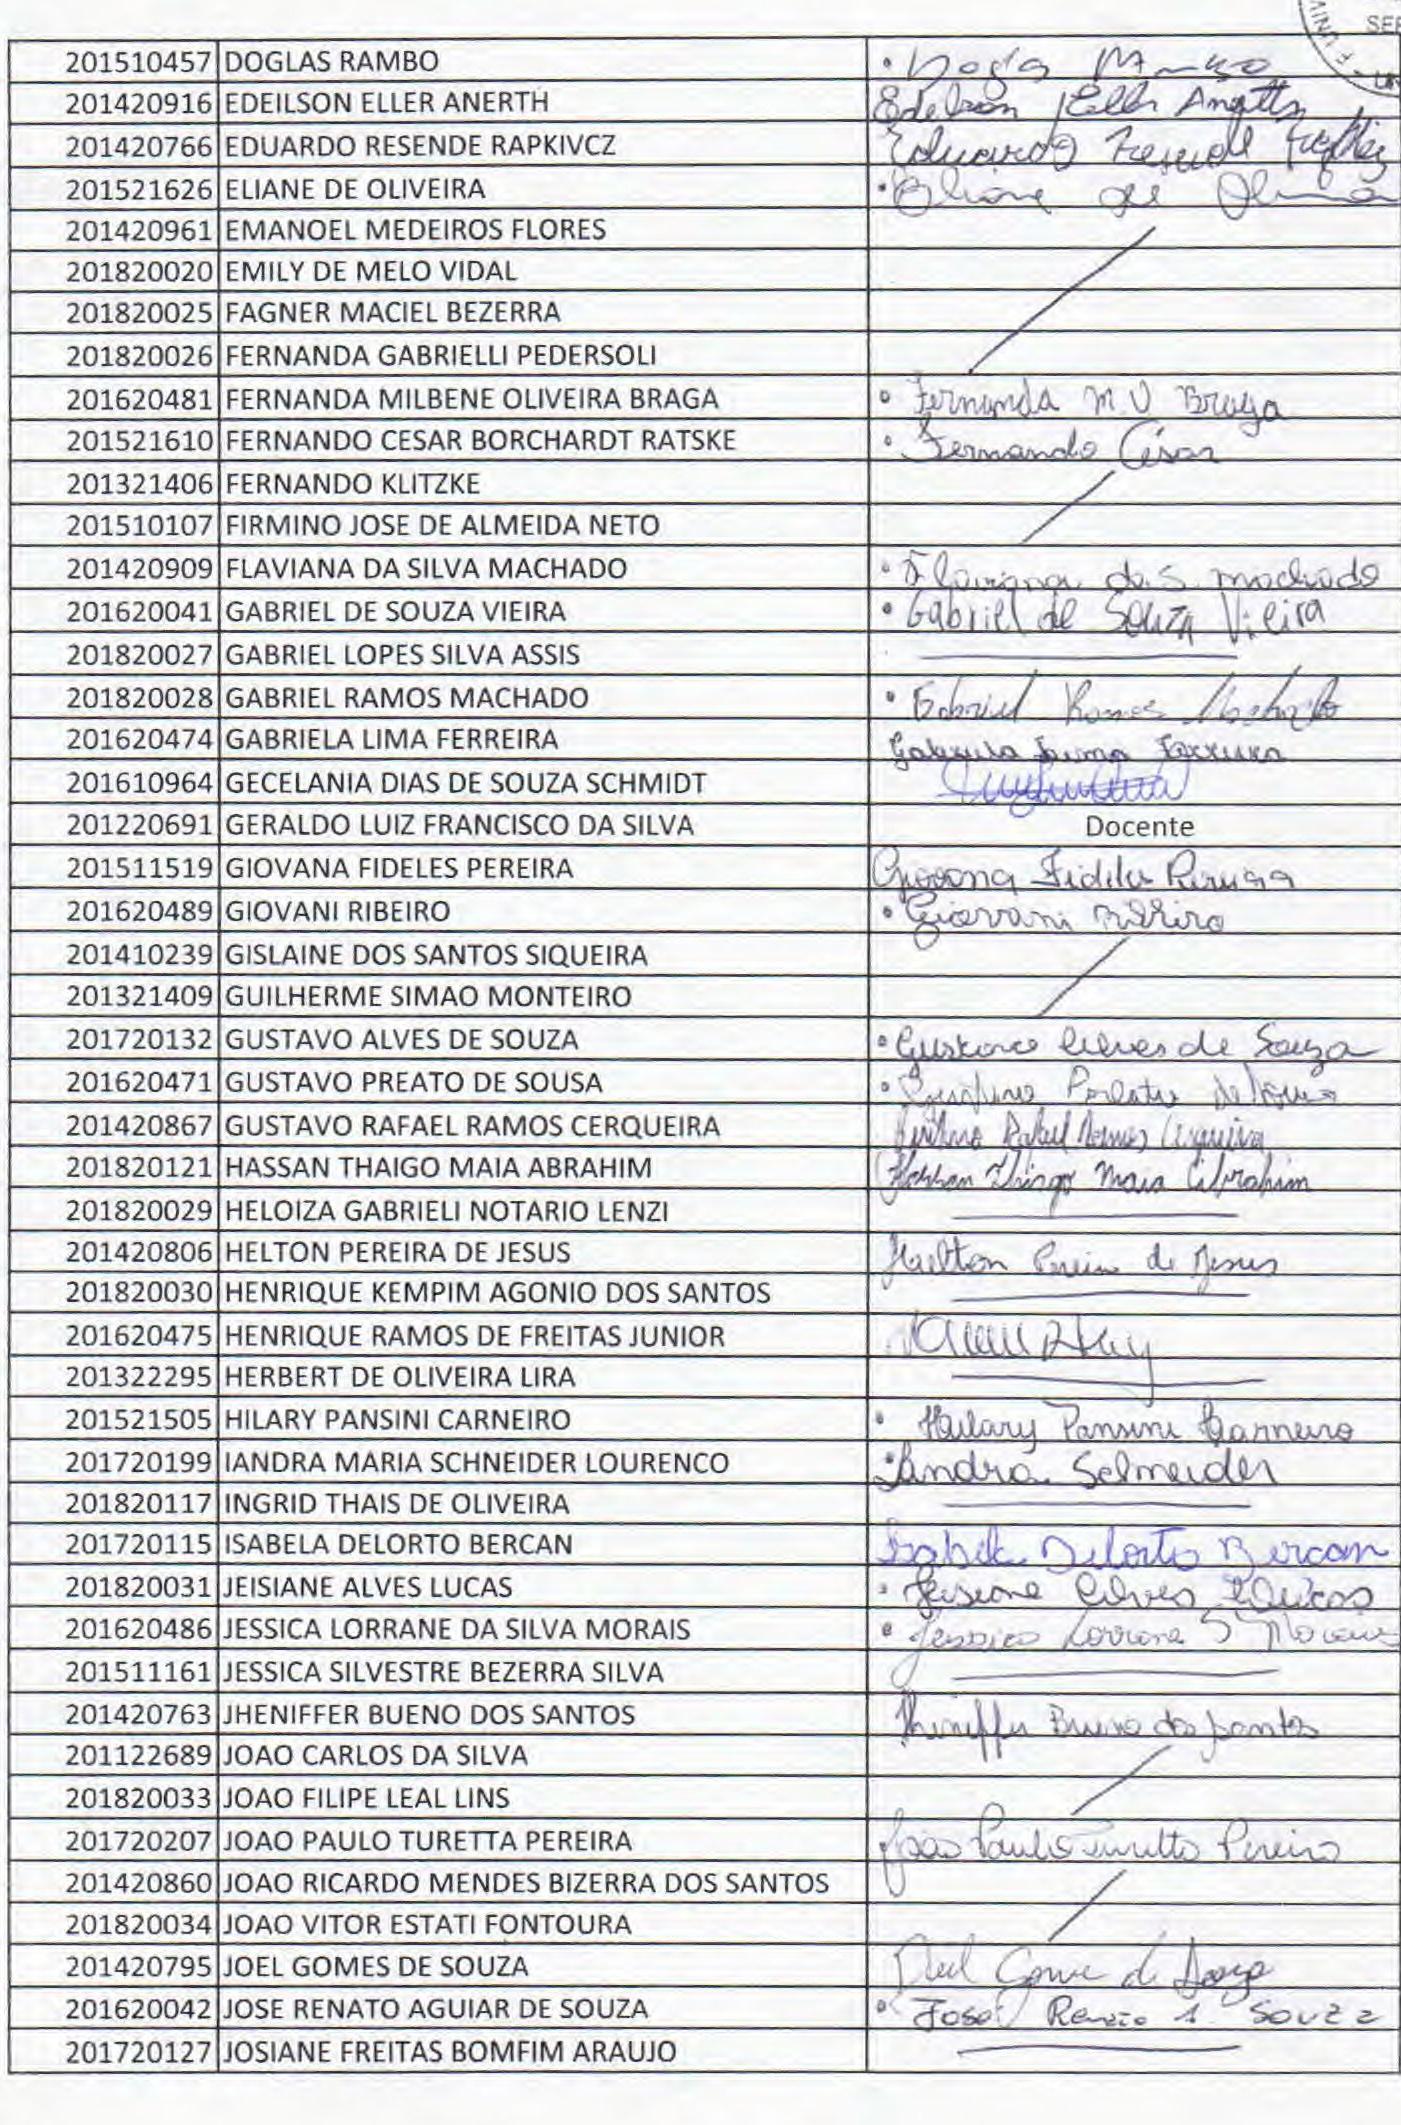 SE
201510457 DOGLAS RAMBO
201420916 EDEILSON ELLER ANERTH Edeilson Eller
201420766 EDUARDO RESENDE RAPKIVCZ Eduardo Resende
201521626 ELIANE DE OLIVEIRA Eliane de Oliveira
201420961 EMANOEL MEDEIROS FLORES
201820020 EMILY DE MELO VIDAL
201820025 FAGNER MACIEL BEZERRA
201820026 FERNANDA GABRIELLI PEDERSOLI
201620481 FERNANDA MILBENE OLIVEIRA BRAGA Fernanda M. O Braga
201521610 FERNANDO CESAR BORCHARDT RATSKE Fernando César
201321406 FERNANDO KLITZKE
201510107 FIRMINO JOSE DE ALMEIDA NETO
201420909 FLAVIANA DA SILVA MACHADO Flaviana da S. machado
201620041 GABRIEL DE SOUZA VIEIRA Gabriel de Souza Vieira
201820027 GABRIEL LOPES SILVA ASSIS
201820028 GABRIEL RAMOS MACHADO Gabriel Ramos Machado
201620474 GABRIELA LIMA FERREIRA Gabriela Lima Ferreira
201610964 GECELANIA DIAS DE SOUZA SCHMIDT
201220691 GERALDO LUIZ FRANCISCO DA SILVA Docente
201511519 GIOVANA FIDELES PEREIRA Giovana Fideles Pereira
201620489 GIOVANI RIBEIRO Giovani Ribeiro
201410239 GISLAINE DOS SANTOS SIQUEIRA
201321409 GUILHERME SIMAO MONTEIRO
201720132 GUSTAVO ALVES DE SOUZA Gustavo Alves de Souza
201620471 GUSTAVO PREATO DE SOUSA Gustavo Preato de Sousa
201420867 GUSTAVO RAFAEL RAMOS CERQUEIRA Gustavo Rafael Ramos Cerqueira
201820121 HASSAN THAIGO MAIA ABRAHIM Hassan Thiago Maia Abrahim
201820029 HELOIZA GABRIELI NOTARIO LENZI
201420806 HELTON PEREIRA DE JESUS Helton Pereira de Jesus
201820030 HENRIQUE KEMPIM AGONIO DOS SANTOS
201620475 HENRIQUE RAMOS DE FREITAS JUNIOR
201322295 HERBERT DE OLIVEIRA LIRA
201521505 HILARY PANSINI CARNEIRO Hilary Pansini Carneiro
201720199 IANDRA MARIA SCHNEIDER LOURENCO Iandra Schneider
201820117 INGRID THAIS DE OLIVEIRA
201720115 ISABELA DELORTO BERCAN Isabela Delorto Bercan
201820031 JEISIANE ALVES LUCAS Jeisiane Alves Lucas
201620486 JESSICA LORRANE DA SILVA MORAIS Jessica Lorrane S Morais
201511161 JESSICA SILVESTRE BEZERRA SILVA
201420763 JHENIFFER BUENO DOS SANTOS Jheniffer Bueno dos Santos
201122689 JOAO CARLOS DA SILVA
201820033 JOAO FILIPE LEAL LINS
201720207 JOAO PAULO TURETTA PEREIRA João Paulo Turetta Pereira
201420860 JOAO RICARDO MENDES BIZERRA DOS SANTOS
201820034 JOAO VITOR ESTATI FONTOURA
201420795 JOEL GOMES DE SOUZA Joel Gomes de Souza
201620042 JOSE RENATO AGUIAR DE SOUZA José Renato A. Souza
201720127 JOSIANE FREITAS BOMFIM ARAUJO